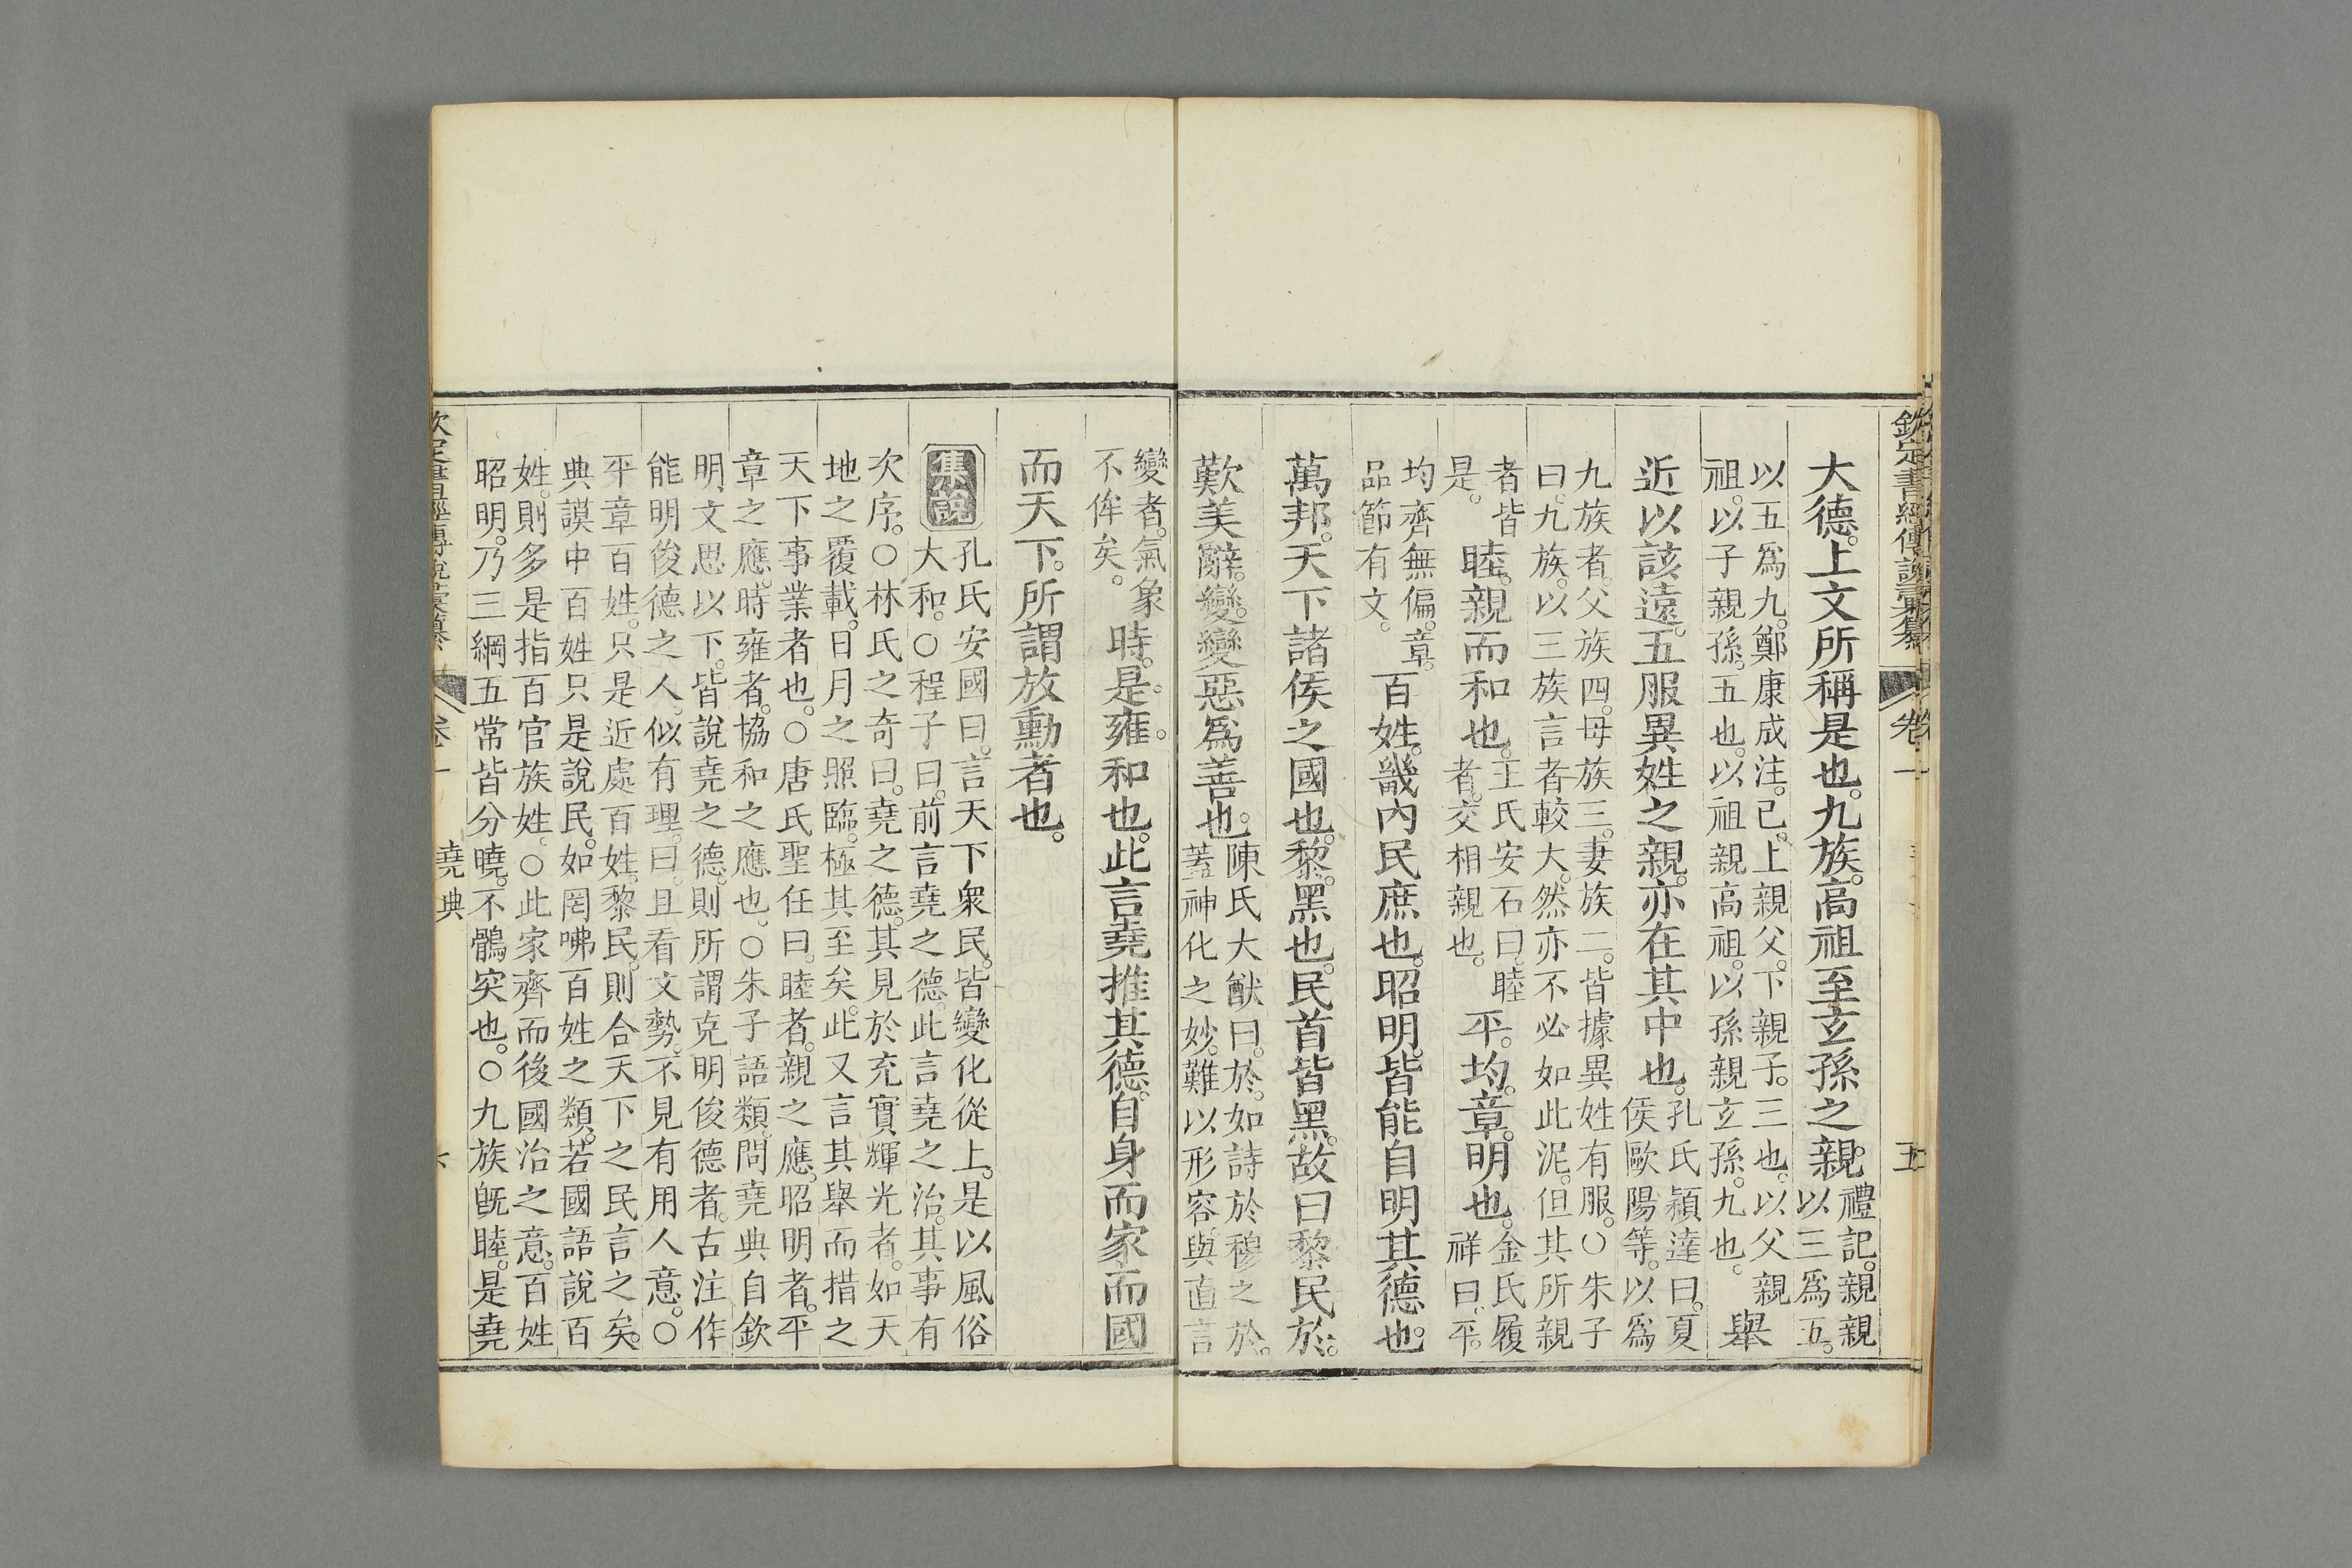 欽定書經傳說彙纂　卷一　五
大德。上文所稱是也。九族。高祖至玄孫之親。禮記。親親以三爲五。
以五爲九。鄭康成注。已。上親父。下親子。三也。以父親祖。以子親孫。五也。以祖親高祖。以孫親玄孫。九也。舉
近以該遠。五服異姓之親。亦在其中也。孔氏穎達曰。夏侯歐陽等。以爲
九族者。父族四。母族三。妻族二。皆據異姓有服。○朱子曰。九族。以三族言者較大。然亦不必如此泥。但其所親
者皆是。睦。親而和也。王氏安石曰。睦者。交相親也。平。均。章。明也。金氏履祥曰。平。
均齊無偏。章。品節有文。百姓。畿內民庶也。昭明。皆能自明其德也。
萬邦。天下諸侯之國也。黎。黑也。民首皆黑。故曰黎民。於。
歎美辭。變。變惡爲善也。陳氏大猷曰。於。如詩於穆之於。蓋神化之妙。難以形容。與直言
變者。氣象不侔矣。時。是。雍。和也。此言堯推其德。自身而家而國
而天下。所謂放勳者也。
集說　孔氏安國曰。言天下衆民。皆變化從上。是以風俗
大和。○程子曰。前言堯之德。此言堯之治。其事有
次序。○林氏之奇曰。堯之德。其見於充實輝光者。如天
地之覆載。日月之照臨。極其至矣。此又言其舉而措之
天下事業者也。○唐氏聖任曰。睦者。親之應。昭明者。平
章之應。時雍者。協和之應也。○朱子語類。問堯典自欽
明文思以下。皆說堯之德。則所謂克明俊德者。古注作
能明俊德之人。似有理。曰。且看文勢。不見有用人意。○
平章百姓。只是近處百姓。黎民。則合天下之民言之矣。
典謨中百姓只是說民。如罔咈百姓之類。若國語說百
姓。則多是指百官族姓。○此家齊而後國治之意。百姓
昭明。乃三綱五常皆分曉。不鶻突也。○九族旣睦。是堯
欽定書經傳說彙纂　卷一　堯典　六